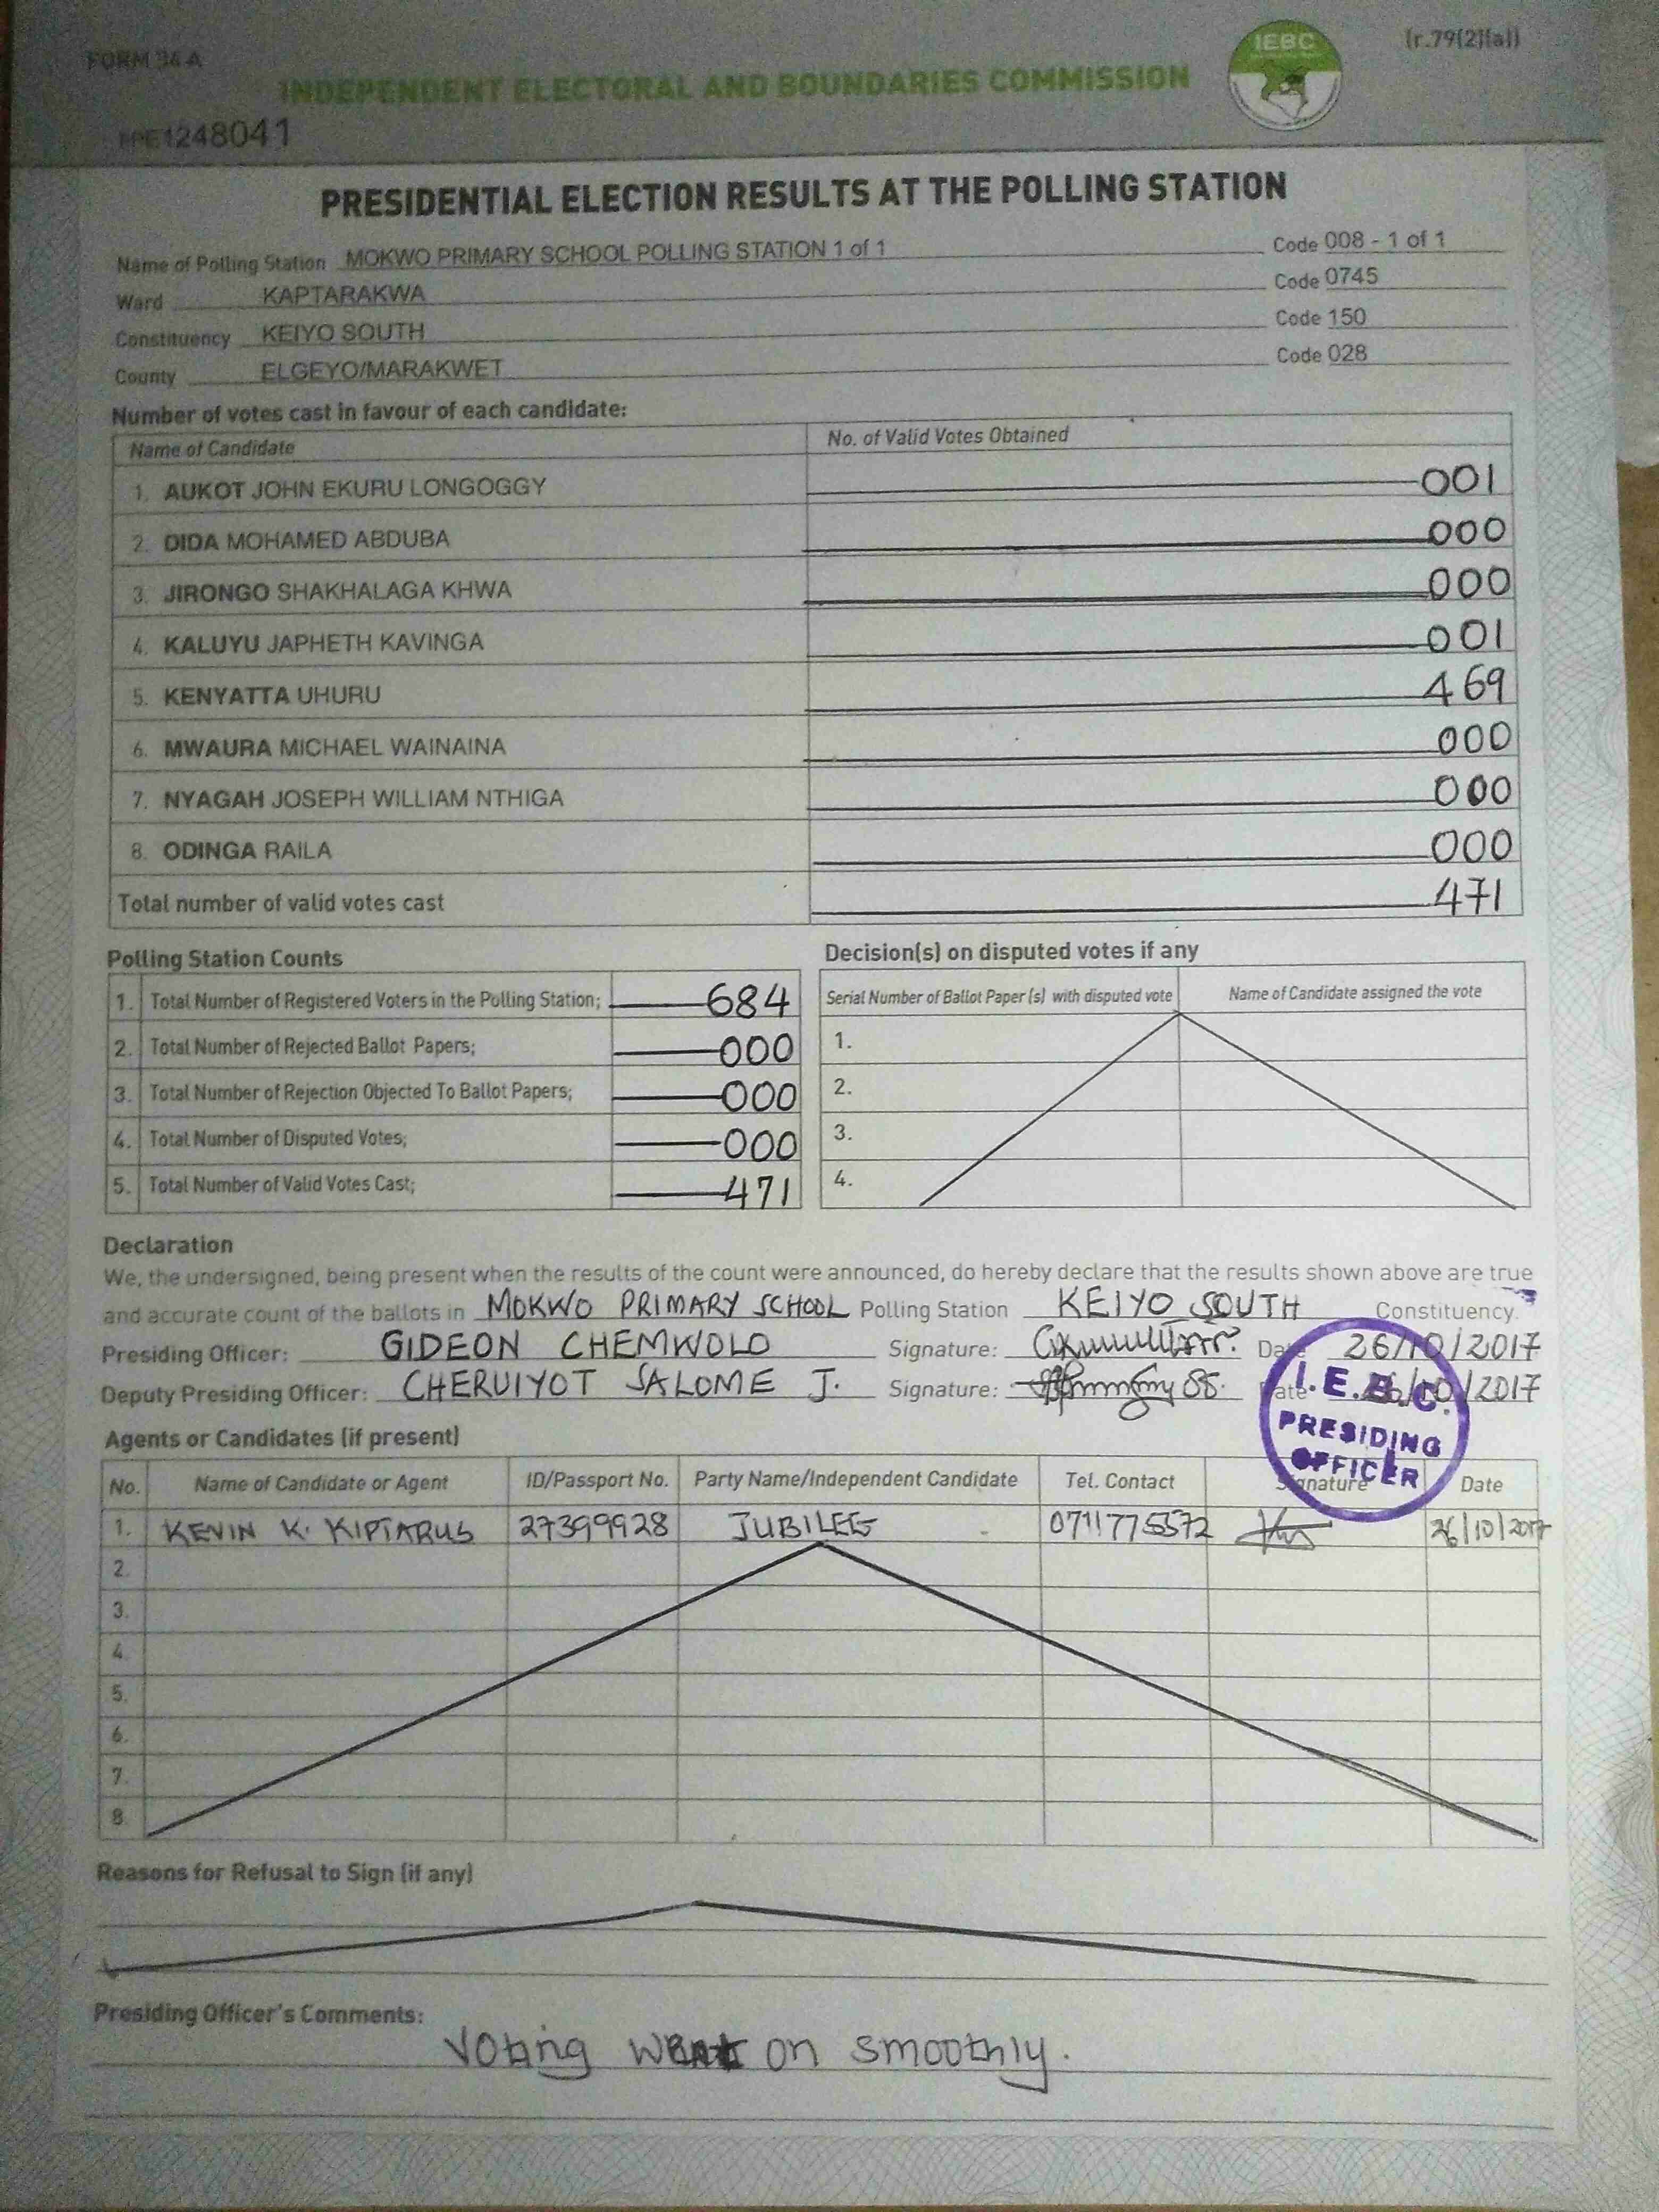 FORM 34 A
IEBC
(r.79(2)(a))
INDEPENDENT ELECTORAL AND BOUNDARIES COMMISSION
1248041
PRESIDENTIAL ELECTION RESULTS AT THE POLLING STATION
Name of Polling Station MOKWO PRIMARY SCHOOL POLLING STATION 1 of 1 Code 008 - 1 of 1
Ward KAPTARAKWA Code 0745
Constituency KEIYO SOUTH Code 150
County ELGEYO/MARAKWET Code 028
Number of votes cast in favour of each candidate:
Name of Candidate No. of Valid Votes Obtained
1. AUKOT JOHN EKURU LONGOGGY 001
2. DIDA MOHAMED ABDUBA 000
3. JIRONGO SHAKHALAGA KHWA 000
4. KALUYU JAPHETH KAVINGA 001
5. KENYATTA UHURU 469
6. MWAURA MICHAEL WAINAINA 000
7. NYAGAH JOSEPH WILLIAM NTHIGA 000
8. ODINGA RAILA 000
Total number of valid votes cast 471
Polling Station Counts
1. Total Number of Registered Voters in the Polling Station; 684
2. Total Number of Rejected Ballot Papers; 000
3. Total Number of Rejection Objected To Ballot Papers; 000
4. Total Number of Disputed Votes; 000
5. Total Number of Valid Votes Cast; 471
Decision(s) on disputed votes if any
Serial Number of Ballot Paper (s) with disputed vote Name of Candidate assigned the vote
1.
2.
3.
4.
Declaration
We, the undersigned, being present when the results of the count were announced, do hereby declare that the results shown above are true
and accurate count of the ballots in MOKWO PRIMARY SCHOOL Polling Station KEIYO SOUTH Constituency.
Presiding Officer: GIDEON CHEMWOLO Signature: Date 26/10/2017
Deputy Presiding Officer: CHERUIYOT SALOME J. Signature: Date 26/10/2017
I.E.B.C.
PRESIDING
OFFICER
Agents or Candidates (if present)
No. Name of Candidate or Agent ID/Passport No. Party Name/Independent Candidate Tel. Contact Signature Date
1. KEVIN K. KIPTARUS 27399928 JUBILEE 0711775572 26/10/2017
2.
3.
4.
5.
6.
7.
8.
Reasons for Refusal to Sign (if any)
Presiding Officer's Comments:
Voting went on smoothly.